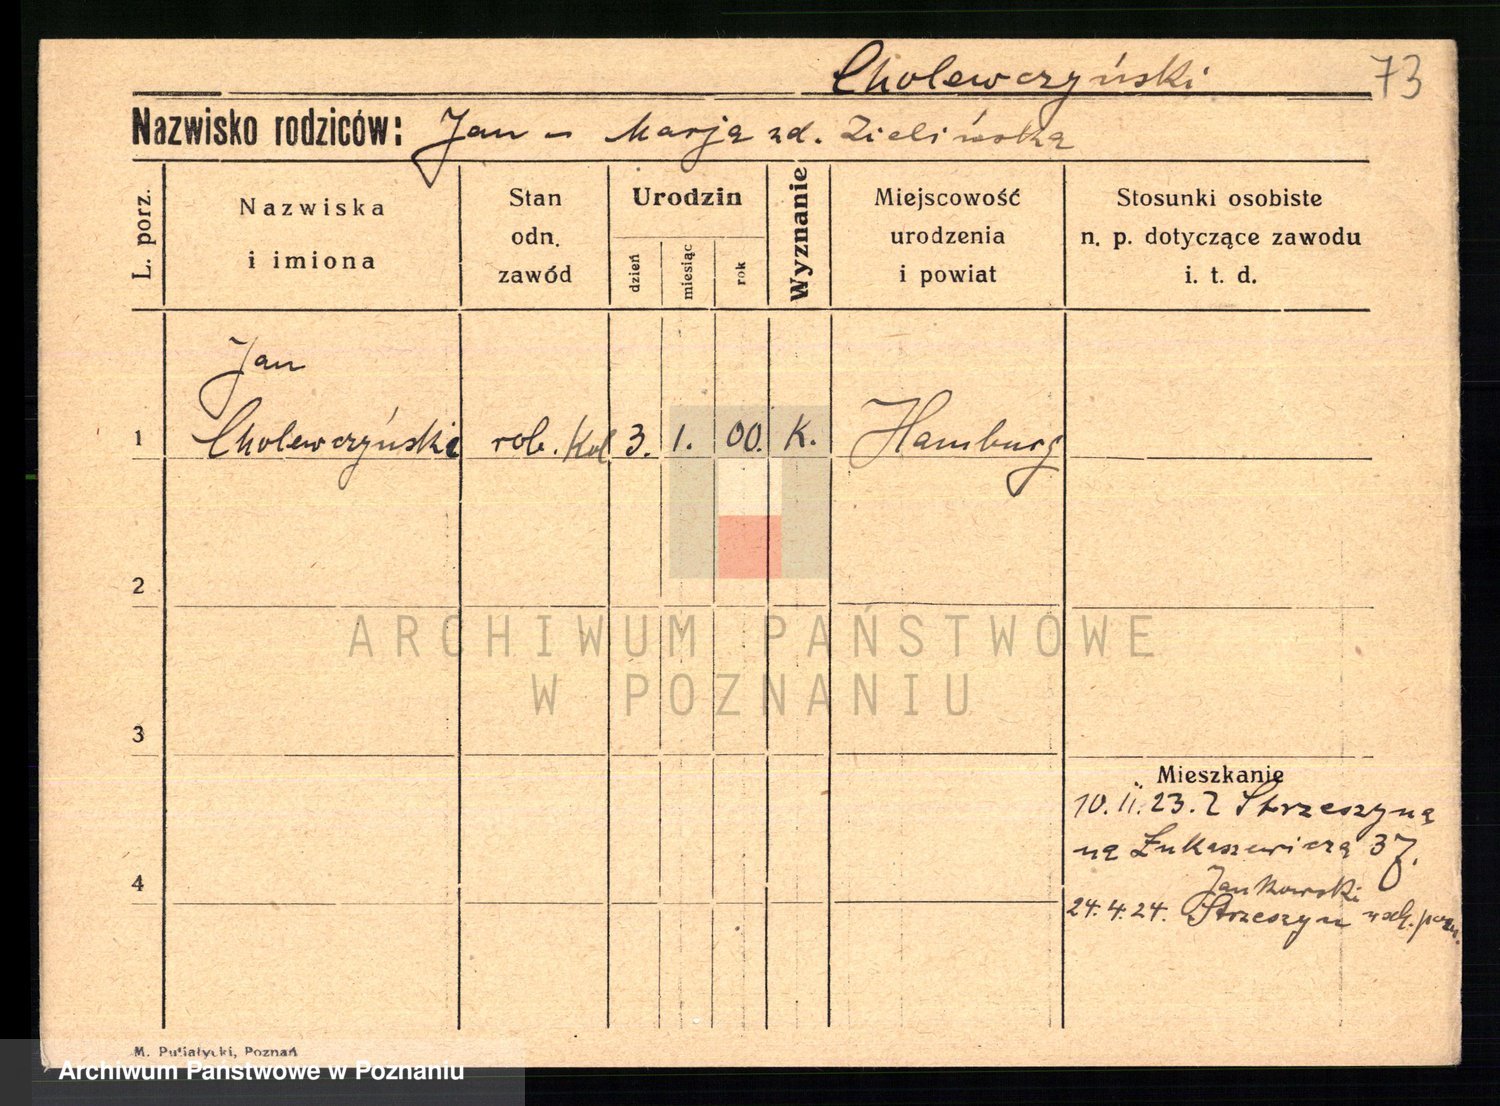 Cholewczyński 73
Nazwisko rodziców: Jan – Marja zd. Zielińska
L. porz.
Nazwiska
i imiona
Stan
odn.
zawód
Urodzin
dzień
miesiąc
rok
Wyznanie
Miejscowość
urodzenia
i powiat
Stosunki osobiste
n. p. dotyczące zawodu
i. t. d.
Jan
1 Cholewczyński rob. Kol. 3. 1. 00. K. Hamburg
2
ARCHIWUM PAŃSTWOWE
W POZNANIU
3
Mieszkanie
10.II.23. Z Strzeszyna
na Łukaszewicza 37.
4
Jankowski
24.4.24. Strzeszyn
M. Putiatycki, Poznań
Archiwum Państwowe w Poznaniu